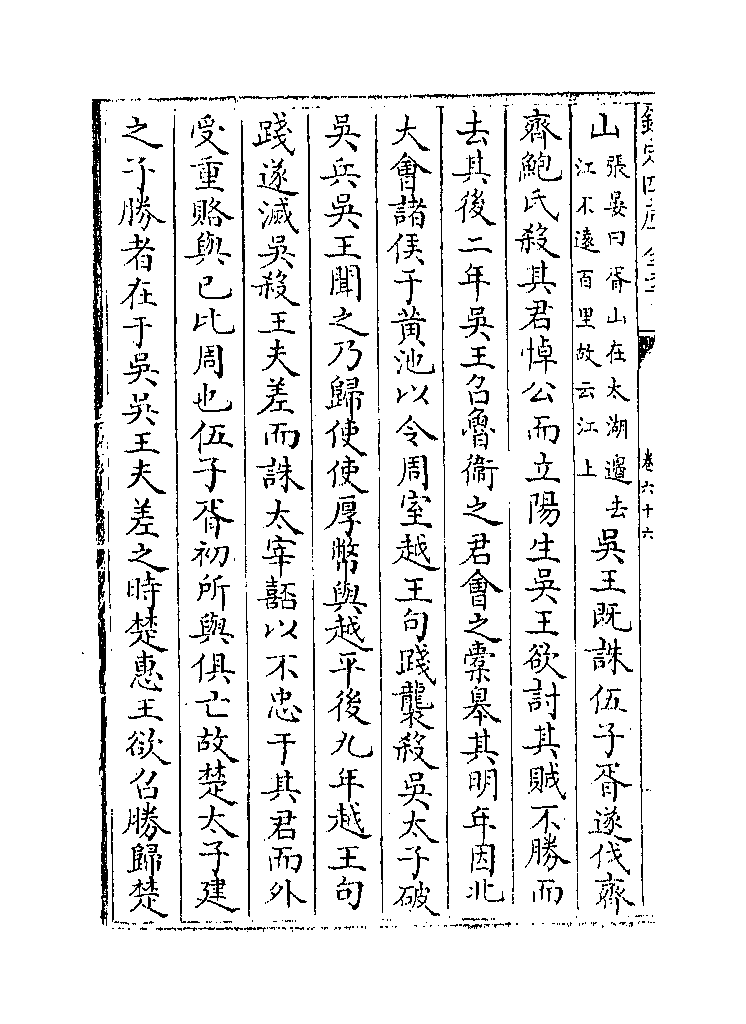 欽定四庫全書
卷六十六
山張晏曰胥山在太湖邊去江不遠百里故云江上吳王既誅伍子胥遂伐齊
齊鮑氏殺其君悼公而立陽生吳王欲討其賊不勝而
去其後二年吳王召魯衞之君會之橐臯其明年因北
大會諸侯于黄池以令周室越王句踐襲殺吳太子破
吳兵吳王聞之乃歸使使厚幣與越平後九年越王句
踐遂滅吳殺王夫差而誅太宰嚭以不忠于其君而外
受重賂與己比周也伍子胥初所與俱亡故楚太子建
之子勝者在于吳吳王夫差之時楚惠王欲召勝歸楚